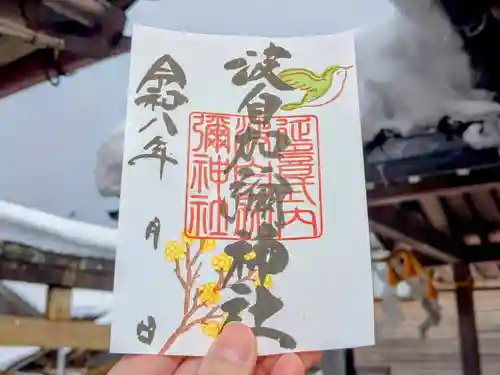 波自加彌神社
延喜式内
波自加
彌神社
令和八年 月 日